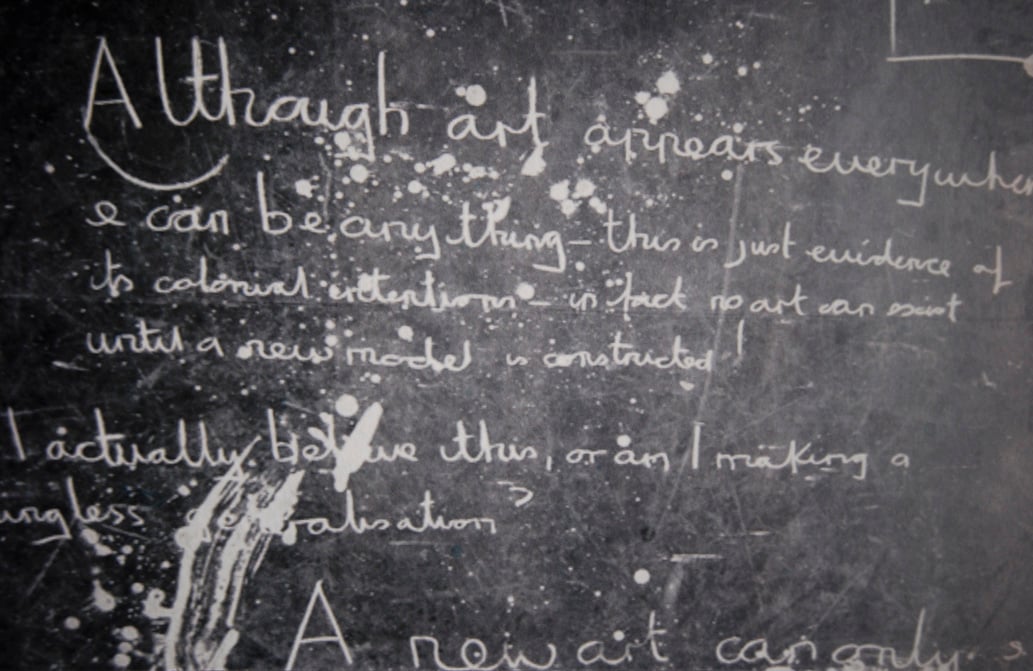 Although art appears everywhe
e can be anything – this is just evidence of
its colonial intentions – in fact no art can exist
until a new model is constructed!
I actually believe this, or am I making a
ingless generalisation?
A new art can only